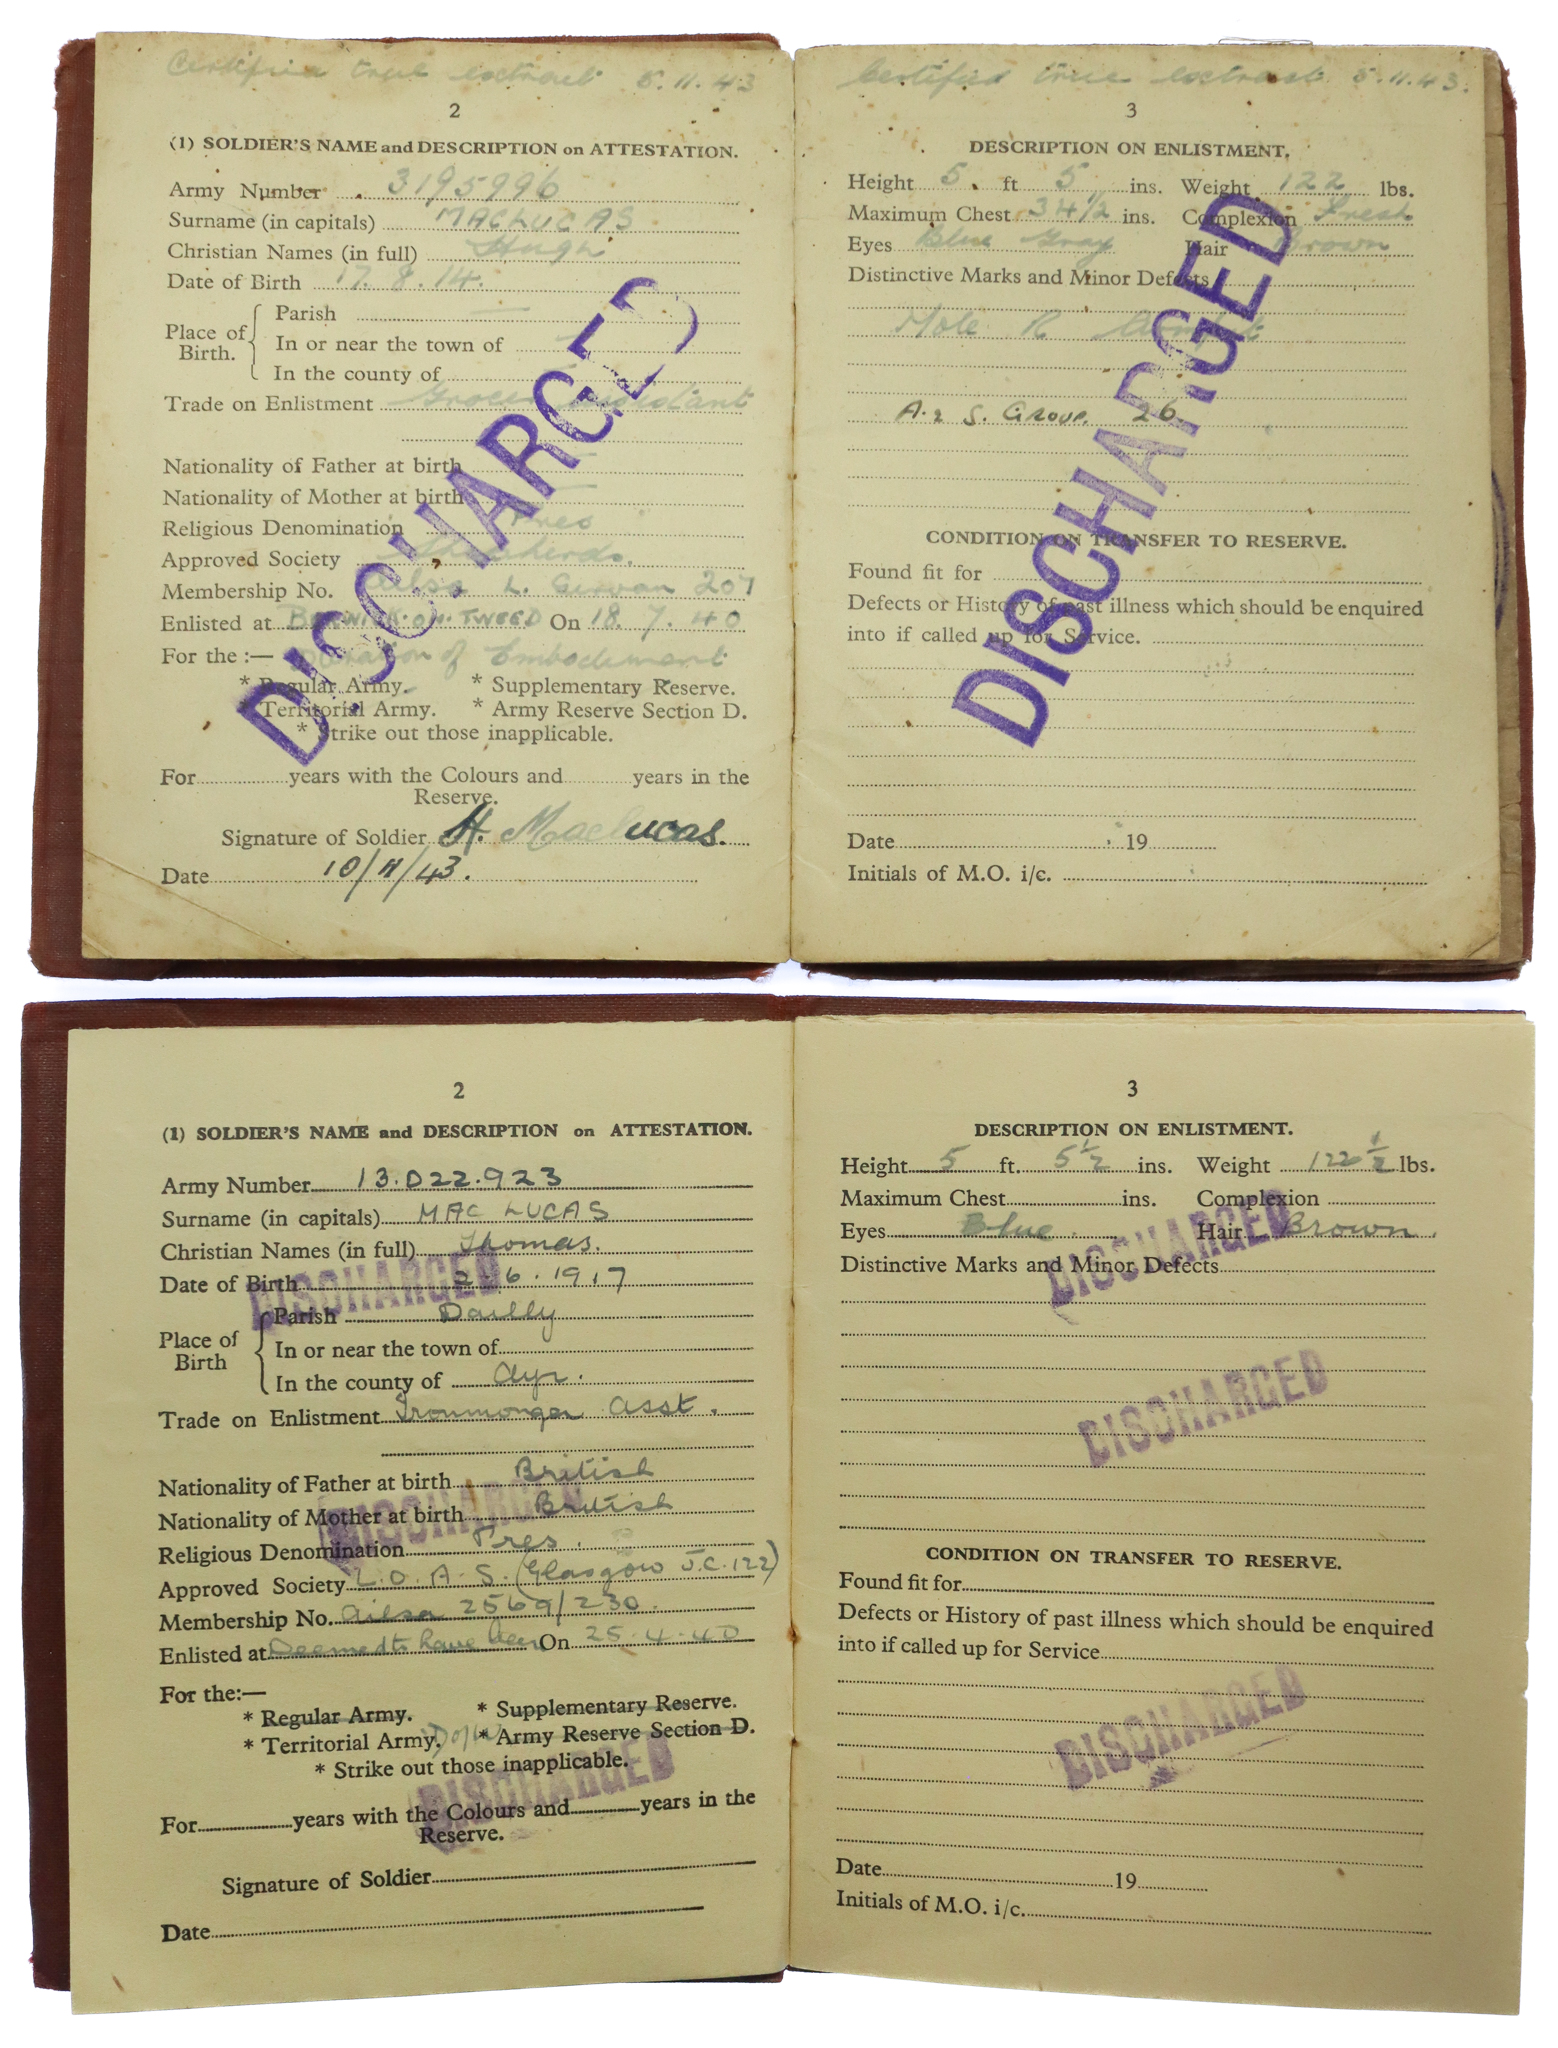 Certified true extract 5.11.43
2
(1) SOLDIER'S NAME and DESCRIPTION on ATTESTATION.
Army Number 3195996
Surname (in capitals) MACLUCAS
Christian Names (in full) Hugh
Date of Birth 17.8.14.
Place of Birth.
Parish —
In or near the town of —
In the county of —
Trade on Enlistment Grocer Assistant
Nationality of Father at birth —
Nationality of Mother at birth —
Religious Denomination Pres
Approved Society Shepherds.
Membership No. Ailsa L. Girvan 207
Enlisted at BERWICK-ON-TWEED On 18.7.40
For the :— Duration of Embodiment
* Regular Army. * Supplementary Reserve.
* Territorial Army. * Army Reserve Section D.
* Strike out those inapplicable.
For years with the Colours and years in the
Reserve.
Signature of Soldier H. MacLucas.
Date 10/11/43.
DISCHARGED
Certified true extract 5.11.43.
3
DESCRIPTION ON ENLISTMENT.
Height 5 ft 5 ins. Weight 122 lbs.
Maximum Chest 34 1/2 ins. Complexion Fresh
Eyes Blue Gray Hair Brown
Distinctive Marks and Minor Defects
Mole R Armpit
A. & S. GROUP. 26
CONDITION ON TRANSFER TO RESERVE.
Found fit for
Defects or History of past illness which should be enquired
into if called up for Service.
Date 19
Initials of M.O. i/c.
DISCHARGED
2
(1) SOLDIER'S NAME and DESCRIPTION on ATTESTATION.
Army Number 13.022.923
Surname (in capitals) MAC LUCAS
Christian Names (in full) Thomas.
Date of Birth 2.6.1917
Place of Birth
Parish Dailly
In or near the town of
In the county of Ayr.
Trade on Enlistment Ironmonger Asst.
Nationality of Father at birth British
Nationality of Mother at birth British
Religious Denomination Pres.
Approved Society L.O.A.S. (Glasgow J.C.122)
Membership No. Ailsa 2569/230.
Enlisted at Deemed to have been On 25.4.40
For the:—
* Regular Army. * Supplementary Reserve.
* Territorial Army. D of W * Army Reserve Section D.
* Strike out those inapplicable.
For years with the Colours and years in the
Reserve.
Signature of Soldier
Date
DISCHARGED
DISCHARGED
DISCHARGED
3
DESCRIPTION ON ENLISTMENT.
Height 5 ft. 5 1/2 ins. Weight 122 1/2 lbs.
Maximum Chest ins. Complexion
Eyes Blue Hair Brown.
Distinctive Marks and Minor Defects
CONDITION ON TRANSFER TO RESERVE.
Found fit for
Defects or History of past illness which should be enquired
into if called up for Service
Date 19
Initials of M.O. i/c.
DISCHARGED
DISCHARGED
DISCHARGED